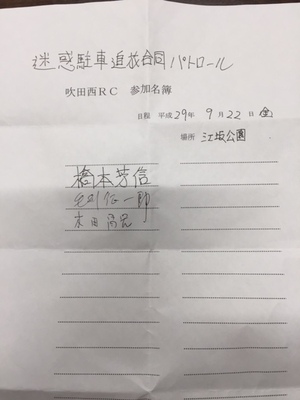 迷惑駐車追放合同パトロール
吹田西RC 参加名簿
日程 平成29年 9月22日 金
場所 江坂公園
橋本芳信
一郎
木田